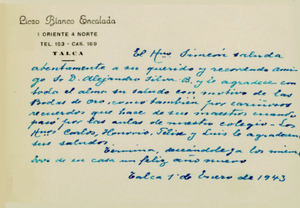 Liceo Blanco Encalada
1 ORIENTE 4 NORTE
TEL. 163 - CAS. 169
TALCA
El Hno. Simeón saluda
atentamente a su querido y recordado Amigo
Sr. D. Alejandro Silva B. y le agradece con
toda el alma su saludo con motivo de las
Bodas de oro, como también por cariñosos
recuerdos que hace de sus maestros cuando
pasó por las aulas de nuestro colegio. Los
Hnos. Carlos, Honorio, Félix y Luis le agradecen
sus saludos.
Termina, deseándole a los
de su casa un feliz año nuevo
Talca 1° de Enero de 1943